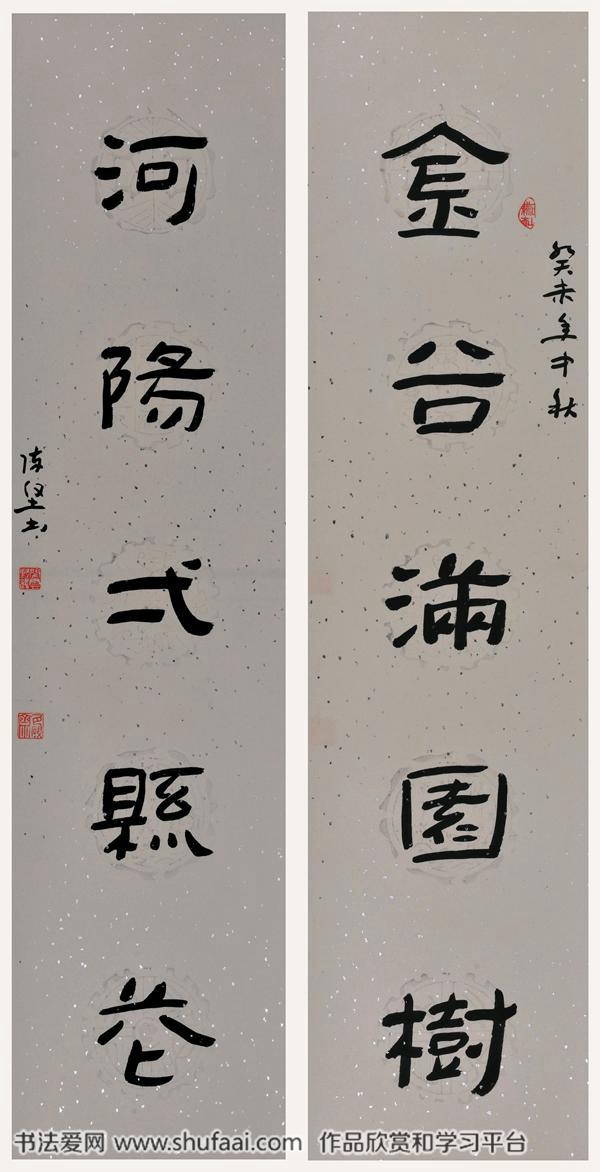 癸未年中秋
金谷滿園樹
河陽弌縣花
陈坚书
书法爱网 www.shufaai.com 作品欣赏和学习平台